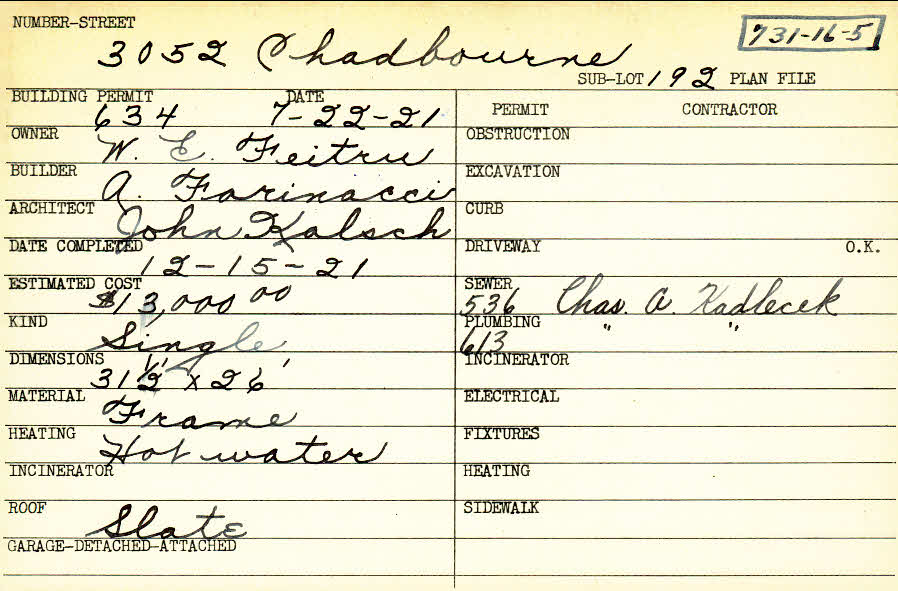 NUMBER-STREET
3052 Chadbourne
731-16-5
SUB-LOT 192 PLAN FILE
BUILDING PERMIT DATE
634 7-22-21
OWNER
W. E. Feitru
BUILDER
A. Farinacci
ARCHITECT
John Kalsch
DATE COMPLETED
12-15-21
ESTIMATED COST
$13,000 00
KIND
Single
DIMENSIONS
31 1/2' x 26'
MATERIAL
Frame
HEATING
Hot water
INCINERATOR
ROOF
Slate
GARAGE-DETACHED-ATTACHED
PERMIT CONTRACTOR
OBSTRUCTION
EXCAVATION
CURB
DRIVEWAY O.K.
SEWER
536 Chas. A. Kadlecek
PLUMBING " "
613
INCINERATOR
ELECTRICAL
FIXTURES
HEATING
SIDEWALK